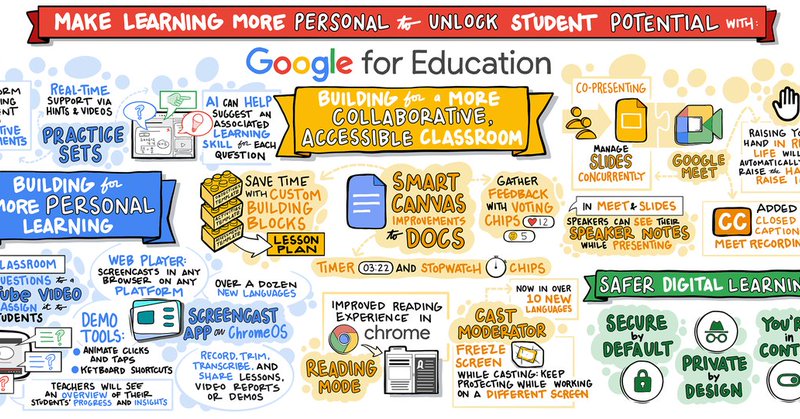 MAKE LEARNING MORE PERSONAL to UNLOCK STUDENT POTENTIAL WITH:
Google for Education
REAL-TIME
SUPPORT VIA
HINTS & VIDEOS
PRACTICE
SETS
AI CAN HELP
SUGGEST AN
ASSOCIATED
LEARNING
SKILL for EACH
QUESTION
BUILDING for
MORE PERSONAL
LEARNING
CLASSROOM
QUESTIONS to a
Tube VIDEO
ASSIGN it to
STUDENTS
WEB PLAYER:
SCREENCASTS IN ANY
BROWSER ON ANY
PLATFORM
OVER A DOZEN
NEW LANGUAGES
DEMO
TOOLS:
• ANIMATE CLICKS
AND TAPS
• KETBOARD SHORTCUTS
SCREENCAST
APP on ChromeOS
RECORD, TRIM,
TRANSCRIBE, AND
SHARE LESSONS,
VIDEO REPORTS
OR DEMOS
TEACHERS WILL SEE
AN OVERVIEW OF THEIR
STUDENTS' PROGRESS AND INSIGHTS
BUILDING for a MORE
COLLABORATIVE,
ACCESSIBLE CLASSROOM
SAVE TIME
WITH CUSTOM
BUILDING
BLOCKS
LESSON
PLAN
SMART
CANVAS
IMPROVEMENTS
to DOCS
GATHER
FEEDBACK
WITH VOTING
CHIPS
12
5
TIMER 03:22 AND STOPWATCH CHIPS
IMPROVED READING
EXPERIENCE IN
chrome
READING
MODE
NOW IN OVER
10 NEW
LANGUAGES
CAST
MODERATOR
FREEZE
SCREEN
WHILE CASTING: KEEP
PROJECTING WHILE WORKING
ON A DIFFERENT SCREEN
CO-PRESENTING
MANAGE
SLIDES
CONCURRENTLY
GOOGLE
MEET
RAISING YOUR
HAND IN RE
LIFE WILL
AUTOMATICALLY
RAISE the HA
RAISE I
IN MEET & SLIDES
SPEAKERS CAN SEE THEIR
SPEAKER NOTES
WHILE PRESENTING
CC
ADDED
CLOSED
CAPTION
MEET RECORDIN
SAFER DIGITAL LEARNIN
SECURE
by
DEFAULT
PRIVATE
by
DESIGN
YOU'R
IN
CONT